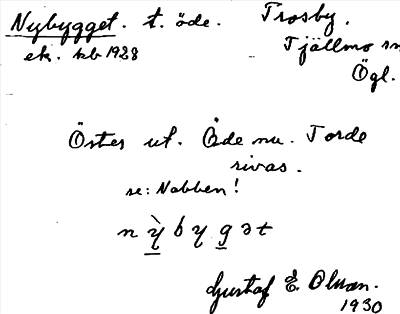 Nybygget. t. öde. Trosby.
ek. kb 1928 Tjällmo sn
Ögl.
Öster ut. Öde nu. Torde
rivas.
se: Nabben!
n ỳ b y g ə t
Gustaf E. Olson.
1930